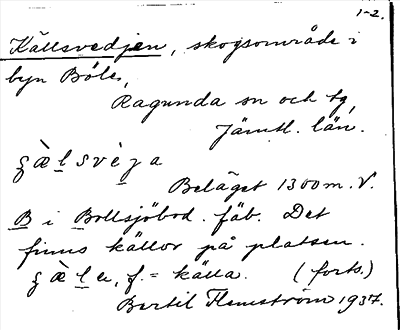 1-2.
Källsvedjen, skogsområde i
byn Böle,
Ragunda sn och tg,
Jämtl. län.
ʒæ̀lsvèʒa
Beläget 1300 m. V.
B i Bollsjöbod. fäb. Det
finns källor på platsen.
ʒæ̀la, f. = källa. (forts.)
Bertil Flemström 1937.